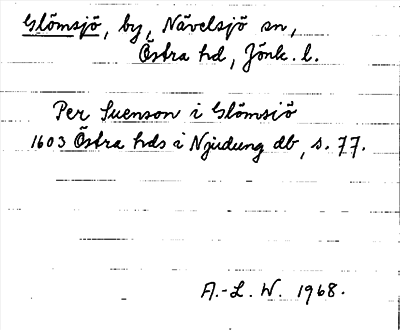 Glömsjö, by, Nävelsjö sn,
Östra hd, Jönk. l.
Per Suenson i Glömsiö
1603 Östra hds i Njudung db, s. 77.
A.-L. W. 1968.